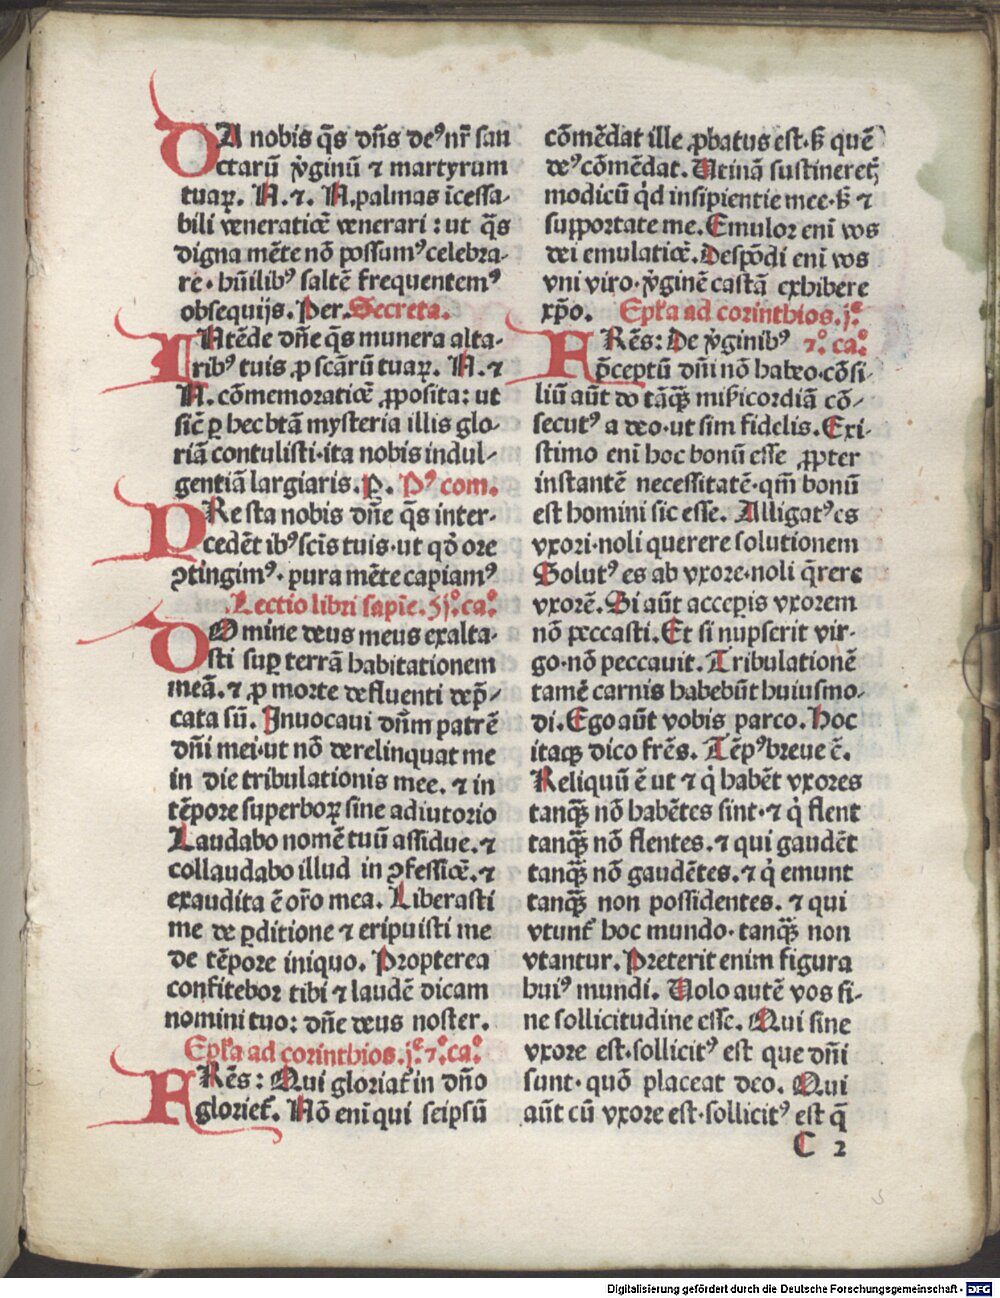 DA nobis q̄s dn̄s deꝰ nr̄ san
ctarū v̓ginū ⁊ martyrum
tuaꝝ. N. ⁊. N. palmas īcessa-
bili veneratiōe venerari : ut q̄s
digna mēte nō possumꝰ celebra-
re · hūilibꝰ saltē frequentemꝰ
obsequijs. Per. Secreta.
INtēde dn̄e q̄s munera alta-
ribꝰ tuis ꝓ scārū tuaꝝ. N. ⁊
N. cōmemoratiōe ꝓposita : ut
sic̄ ꝑ hec btā mysteria illis glo-
riā contulisti · ita nobis indul-
gentiā largiaris. P. Pꝰ com.
PRe sta nobis dn̄e q̄s inter-
cedēt ibꝰ scīs tuis · ut qd̄ ore
ꝯtingimꝰ · pura mēte capiamꝰ
Lectio libri sapīe. ȝjº. caº
DOmine deus meus exalta-
sti suꝑ terrā habitationem
meā. ⁊ ꝓ morte defluenti dep̄-
cata sū. Inuocaui dn̄m patrē
dn̄i mei · ut nō derelinquat me
in die tribulationis mee. ⁊ in
tēpore superboꝝ sine adiutorio
Laudabo nomē tuū assidue. ⁊
collaudabo illud in ꝯfessiōe. ⁊
exaudita ē or̄o mea. Liberasti
me de ꝑditione ⁊ eripuisti me
de tēpore iniquo. Propterea
confitebor tibi ⁊ laudē dicam
nomini tuo : dn̄e deus noster.
Epl̄a ad corinthios. jᵉ. ⁊º. caº.
FRēs : Qui gloriat᷑ in dn̄o
gloriet᷑. Nō eni qui seipsū
cōmēdat ille ꝓbatus est · ꝭ quē
deꝰ cōmēdat. Utinā sustineretꝭ
modicū qd̓ insipientie mee · ꝭ ⁊
supportate me. Emulor eni vos
dei emulatiōe. Despōdi eni vos
vni viro · v̓ginē castā exhibere
xp̄o. Epl̄a ad corinthios. jᵉ.
FRēs : De v̓ginibꝰ ⁊º. caº.
p̄ceptū dn̄i nō habeo · cōsi-
liū aūt do tāꝙ̄ mīsicordiā cō-
secutꝰ a deo · ut sim fidelis. Exi-
stimo eni hoc bonū esse ꝓpter
instantē necessitatē · qm̄ bonū
est homini sic esse. Alligatꝰ es
vxori · noli querere solutionem
Solutꝰ es ab vxore · noli q̄rere
vxorē. Si aūt acceꝑis vxorem
nō peccasti. Et si nupserit vir-
go · nō peccauit. Tribulationē
tamē carnis habebūt huiusmo-
di. Ego aūt vobis parco. Hoc
itaqꝫ dico frēs. Tēpꝰ breue ē.
Reliquū ē ut ⁊ q̓ habēt vxores
tanꝙ̄ nō habētes sint · ⁊ q̓ flent
tanꝙ̄ nō flentes. ⁊ qui gaudēt
tanꝙ̄ nō gaudētes. ⁊ q̓ emunt
tanꝙ̄ non possidentes. ⁊ qui
vtunt᷑ hoc mundo · tanꝙ̄ non
vtantur. Preterit enim figura
huiꝰ mundi. Uolo autē vos si-
ne sollicitudine esse. Qui sine
vxore est · sollicitꝰ est que dn̄i
sunt · quō placeat deo. Qui
aūt cū vxore est · sollicitꝰ est q̄
C 2
Digitalisierung gefördert durch die Deutsche Forschungsgemeinschaft - DFG